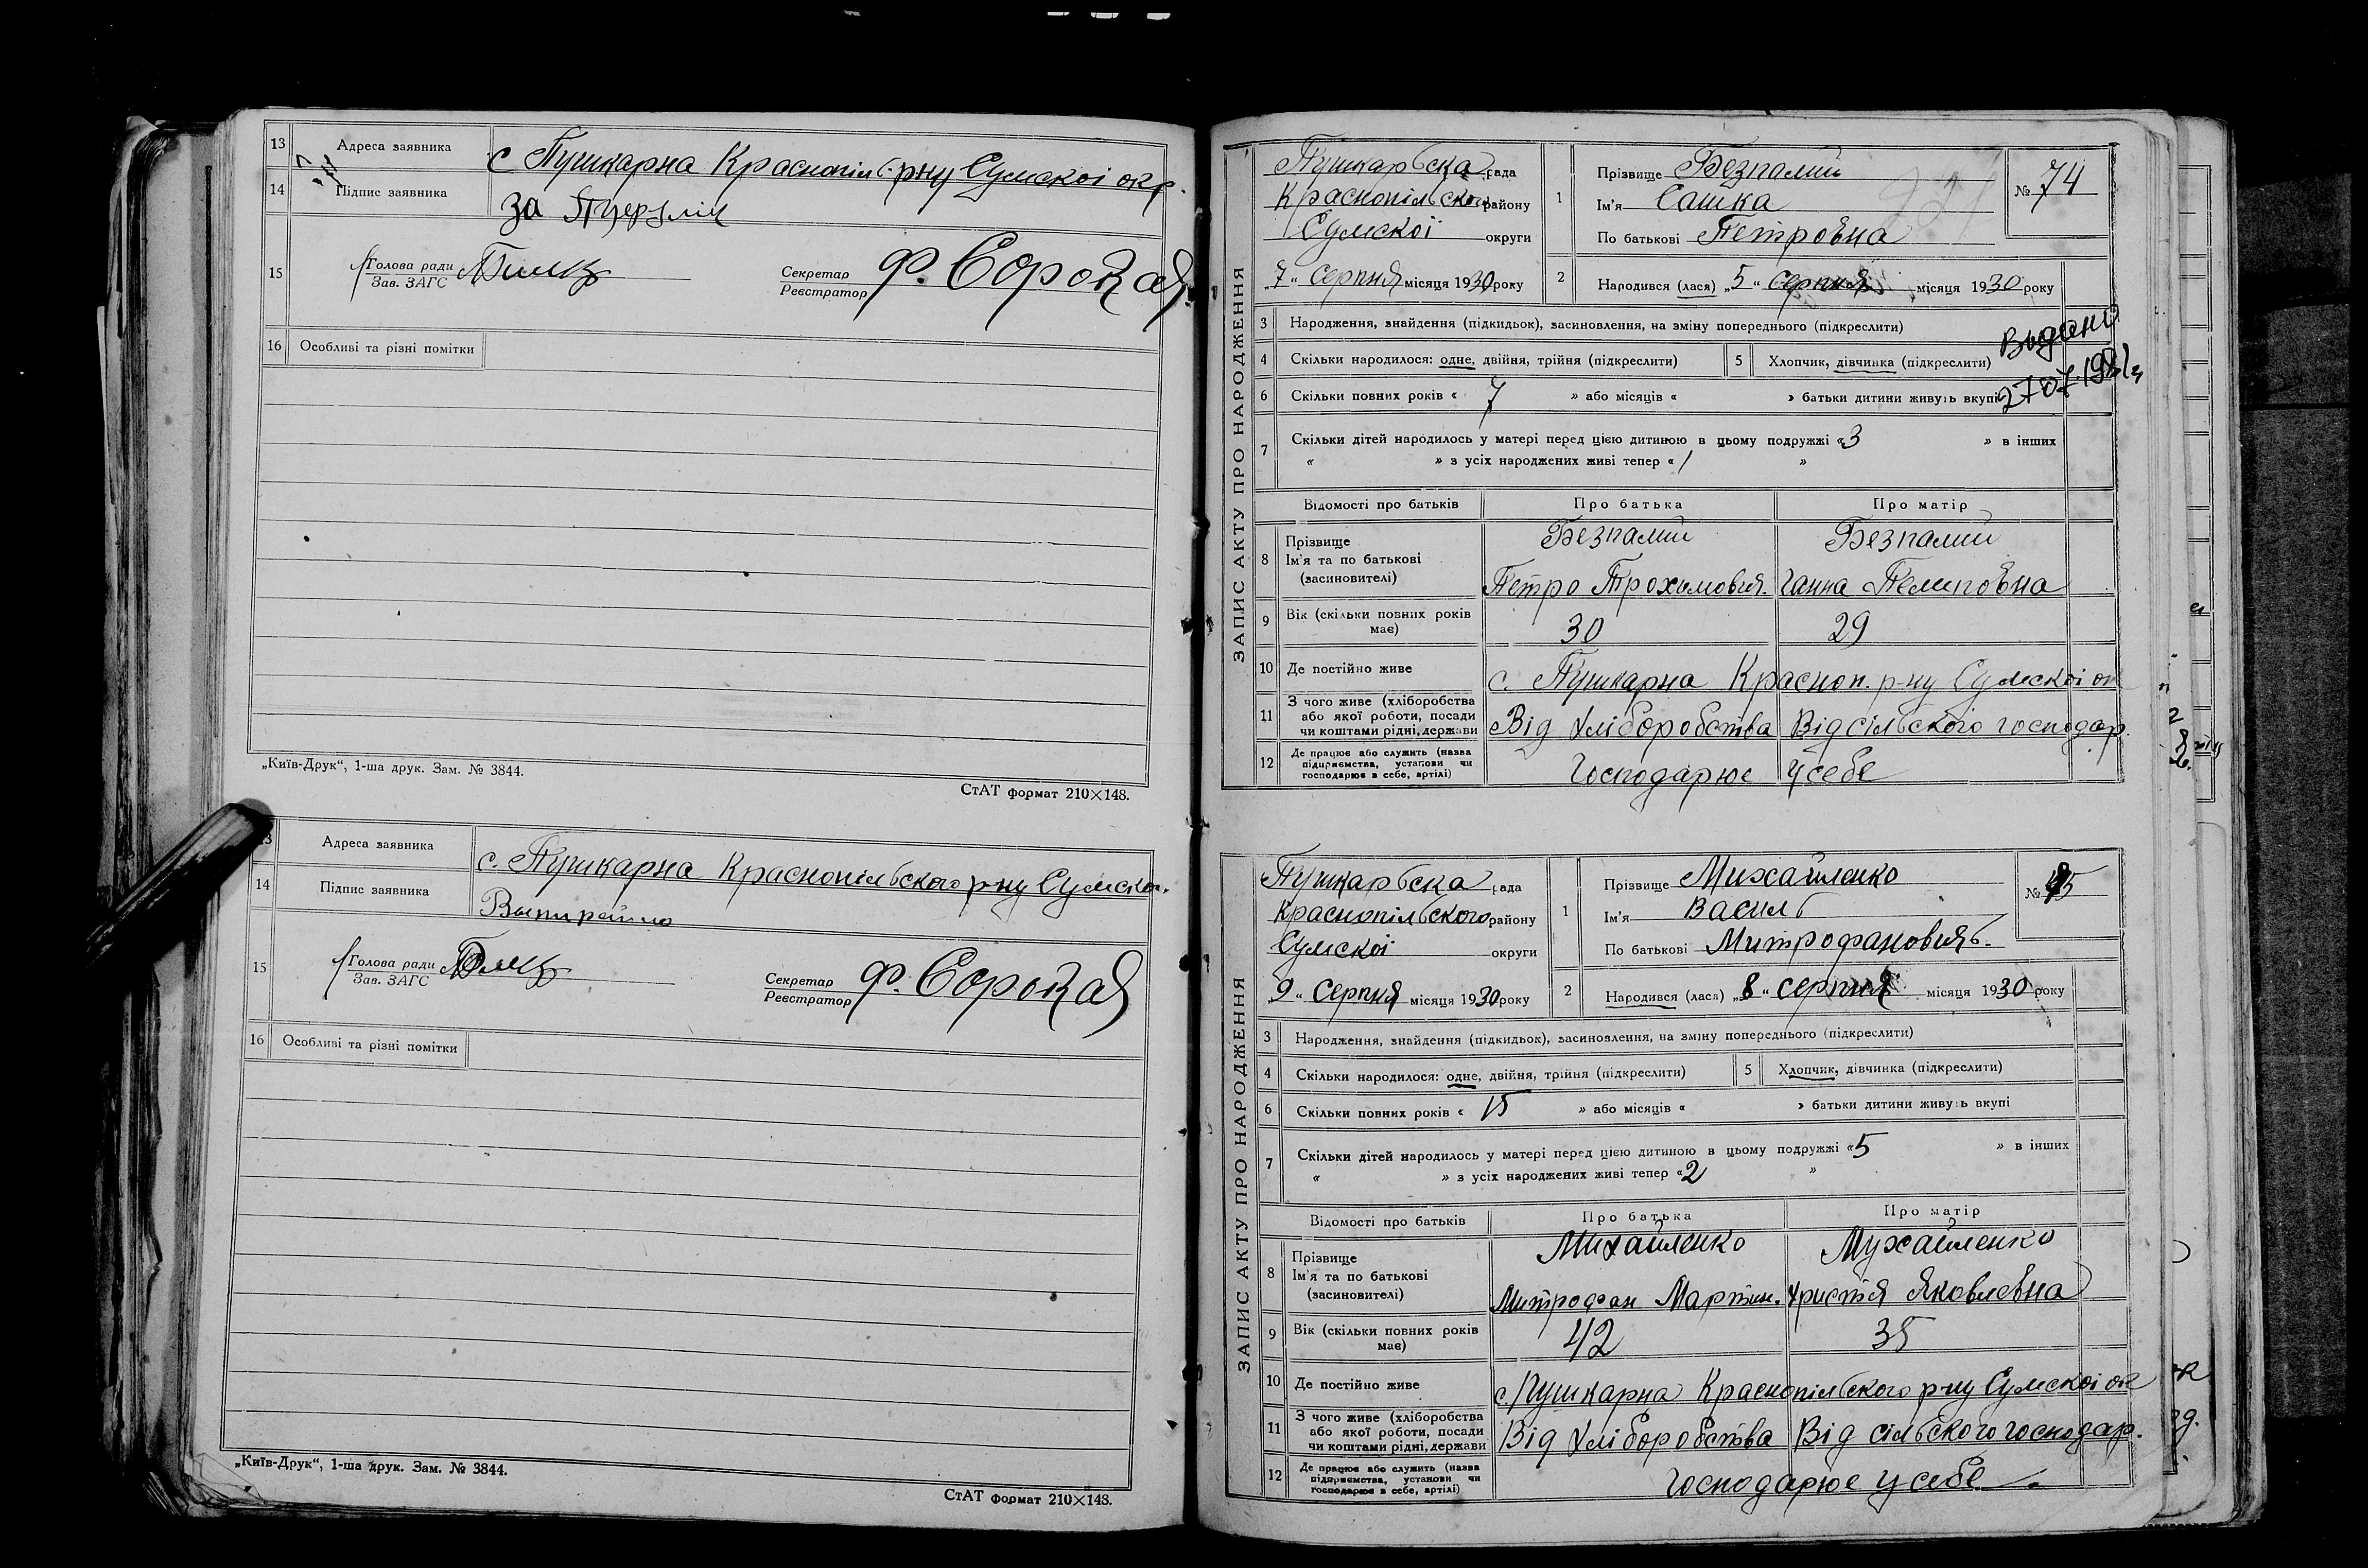 13 Адреса заявника с Пушкарна Краснопільс. р-ну Сумскої окр.
14 Підпис заявника за
15 Голова ради Зав. ЗАГС Секретар Реєстратор Ф. Сорока
16 Особливі та різні помітки
„Київ-Друк“, 1-ша друк. Зам. № 3844.
СтАТ формат 210×148.
13 Адреса заявника с. Пушкарна Краснопільского р-ну Сумској.
14 Підпис заявника
15 Голова ради Зав. ЗАГС Секретар Реєстратор Ф. Сорока
16 Особливі та різні помітки
„Київ-Друк“, 1-ша друк. Зам. № 3844.
СтАТ формат 210×148.
ЗАПИС АКТУ ПРО НАРОДЖЕННЯ
Пушкарьска рада
Краснопільского району
Сумскої округи
„7“ Серпня місяця 1930 року
1 Прізвище Безпалий
Ім'я Сашка
По батькові Петровна
№ 74
2 Народився (лася) „5“ серпня місяця 1930 року
3 Народження, знайдення (підкидьок), засиновлення, на зміну попереднього (підкреслити)
Выдано
4 Скільки народилося: одне, двійня, трійня (підкреслити) 5 Хлопчик, дівчинка (підкреслити)
27 07
6 Скільки повних років « 7 » або місяців « » батьки дитини живуть вкупі
7 Скільки дітей народилось у матері перед цією дитиною в цьому подружжі «3 » в інших
« » з усіх народжених живі тепер «1 »
Відомості про батьків Про батька Про матір
8 Прізвище Ім'я та по батькові (засновителі)
Безпалий Безпалий
Петро Трохимович Ганна Пелиповна
9 Вік (скільки повних років має) 30 29
10 Де постійно живе с. Пушкарна Красноп. р-ну Сумскої ок
11 З чого живе (хліборобства або якої роботи, посади чи коштами рідні, держави Від хліборобства Від сільского господар.
12 Де працює або служить (назва підприємства, установи чи господарює в себе, артілі) Господарює у себе
ЗАПИС АКТУ ПРО НАРОДЖЕННЯ
Пушкарьска рада
Краснопільского району
Сумскої округи
„9“ Серпня місяця 1930 року
1 Прізвище Михайленко
Ім'я Василь
По батькові Митрофановичь.
№ 75
2 Народився (лася) „8“ серпня місяця 1930 року
3 Народження, знайдення (підкидьок), засиновлення, на зміну попереднього (підкреслити)
4 Скільки народилося: одне, двійня, трійня (підкреслити) 5 Хлопчик, дівчинка (підкреслити)
6 Скільки повних років « 15 » або місяців « » батьки дитини живуть вкупі
7 Скільки дітей народилось у матері перед цією дитиною в цьому подружжі «5 » в інших
« » з усіх народжених живі тепер «2 »
Відомості про батьків Про батька Про матір
8 Прізвище Ім'я та по батькові (засиновителі)
Михайленко Мухайленко
Митрофан Мартин. Христія Яковлєвна
9 Вік (скільки повних років має) 42 35
10 Де постійно живе с. Пушкарна Краснопільского р-ну Сумскої ок
11 З чого живе (хліборобства або якої роботи, посади чи коштами рідні, держави Від хліборобства Від сільского господар.
12 Де працює або служить (назва підприємства, установи чи господарює в себе, артілі) Господарює у себе